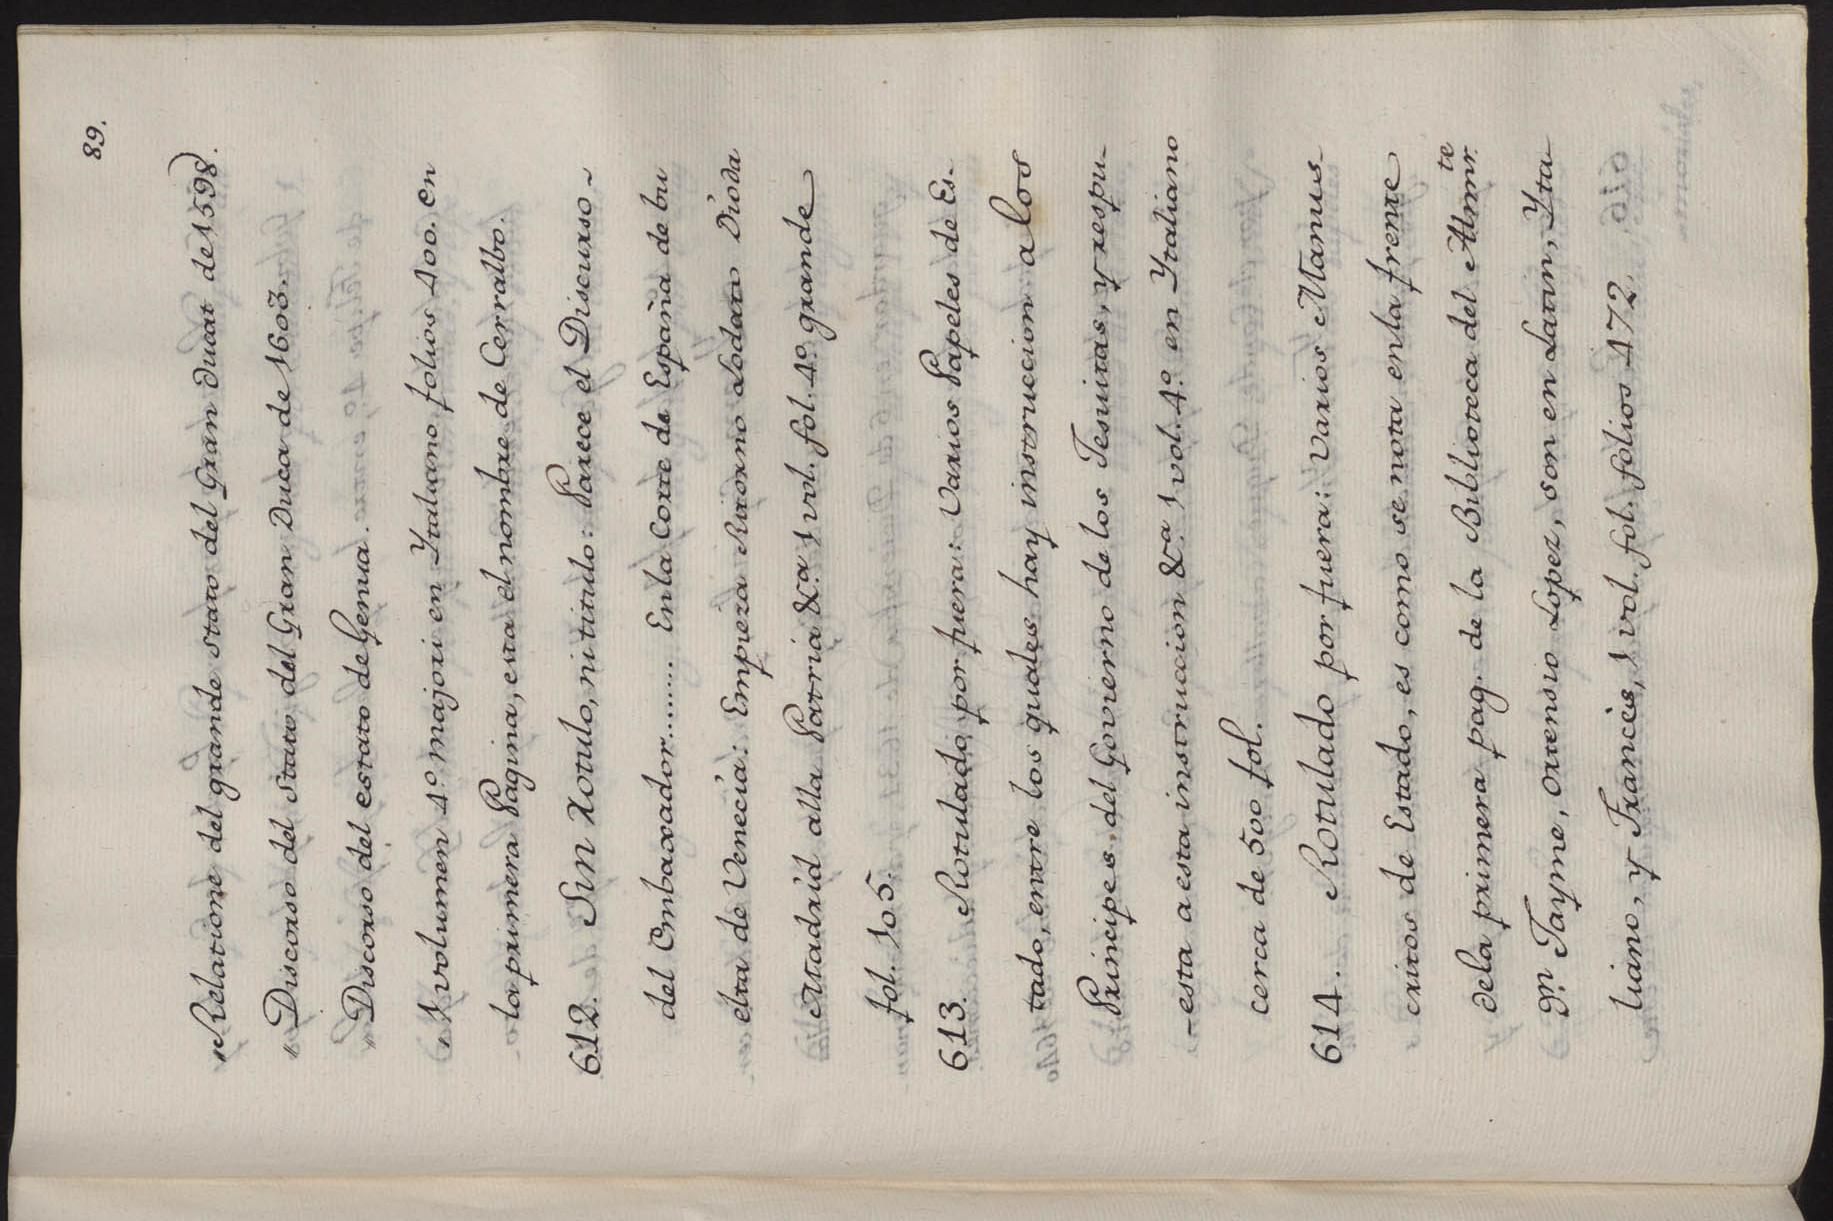 89.
„Relatione del grande stato del Gran duat de 1598).
„Discorso del stato del Gran Duca de 1603.
„Discorso del estato de Genua.
„1 volumen 4º majori en Ytaliano folios 400. en
la primera Pagina, esta el nombre de Cerralbo.
612. Sin Rotulo, ni titulo: Parece el Discurso
del Embaxador........ En la Corte de España de bu
elta de Venecia: Empieza Ritorno Lodato Dioda
Madrid alla Patria &ª 1 vol. fol. 4º grande
fol. 105.
613. Rotulado por fuera: Varios Papeles de Es-
tado, entre los quales hay instruccion a los
Principes del Govierno de los Jesuitas, y respu-
-esta a esta instruccion &ª 1 vol. 4º en Ytaliano
cerca de 500 fol.
614. Rotulado por fuera: Varios Manus-
critos de Estado, es como se nota en la frente
de la primera pag. de la Biblioteca del Almrte
Dn Jayme, Ortensio Lopez, son en Latin, Yta-
liano, y Francés, 1 vol. fol. folios 472